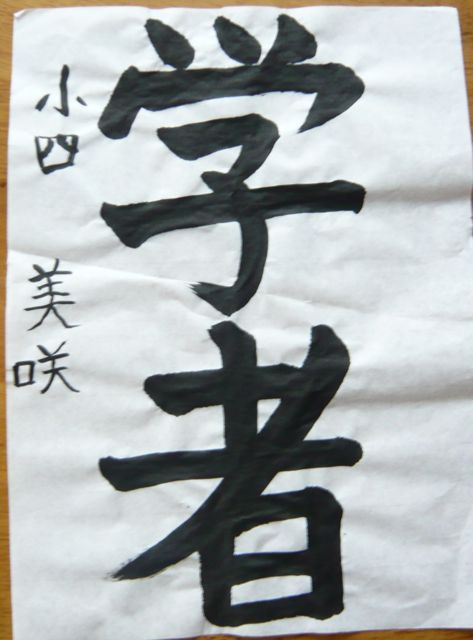 学者
小四 美咲